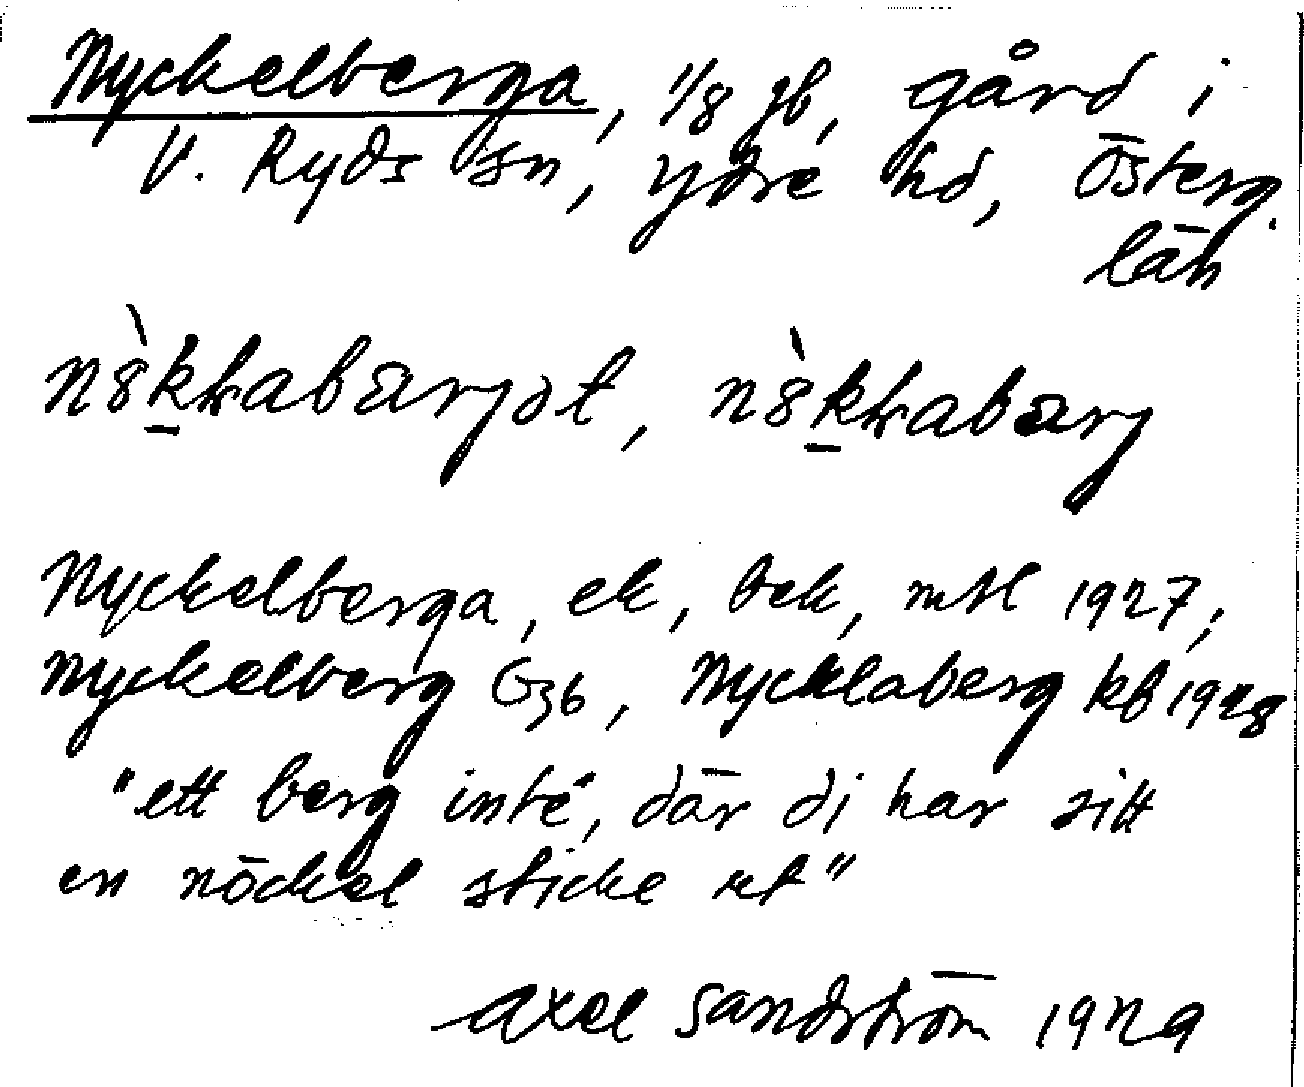 Nyckelberga, 1/8 gb, gård i
V. Ryds sn, Ydre hd, Österg.
län
Nyckelberga, ek, bek, mtl 1927;
Nyckelberg G36, Nycklaberg kb 1928
"ett berg inte, där di har sitt
en nöckel sticke ut"
Axel Sandström 1929